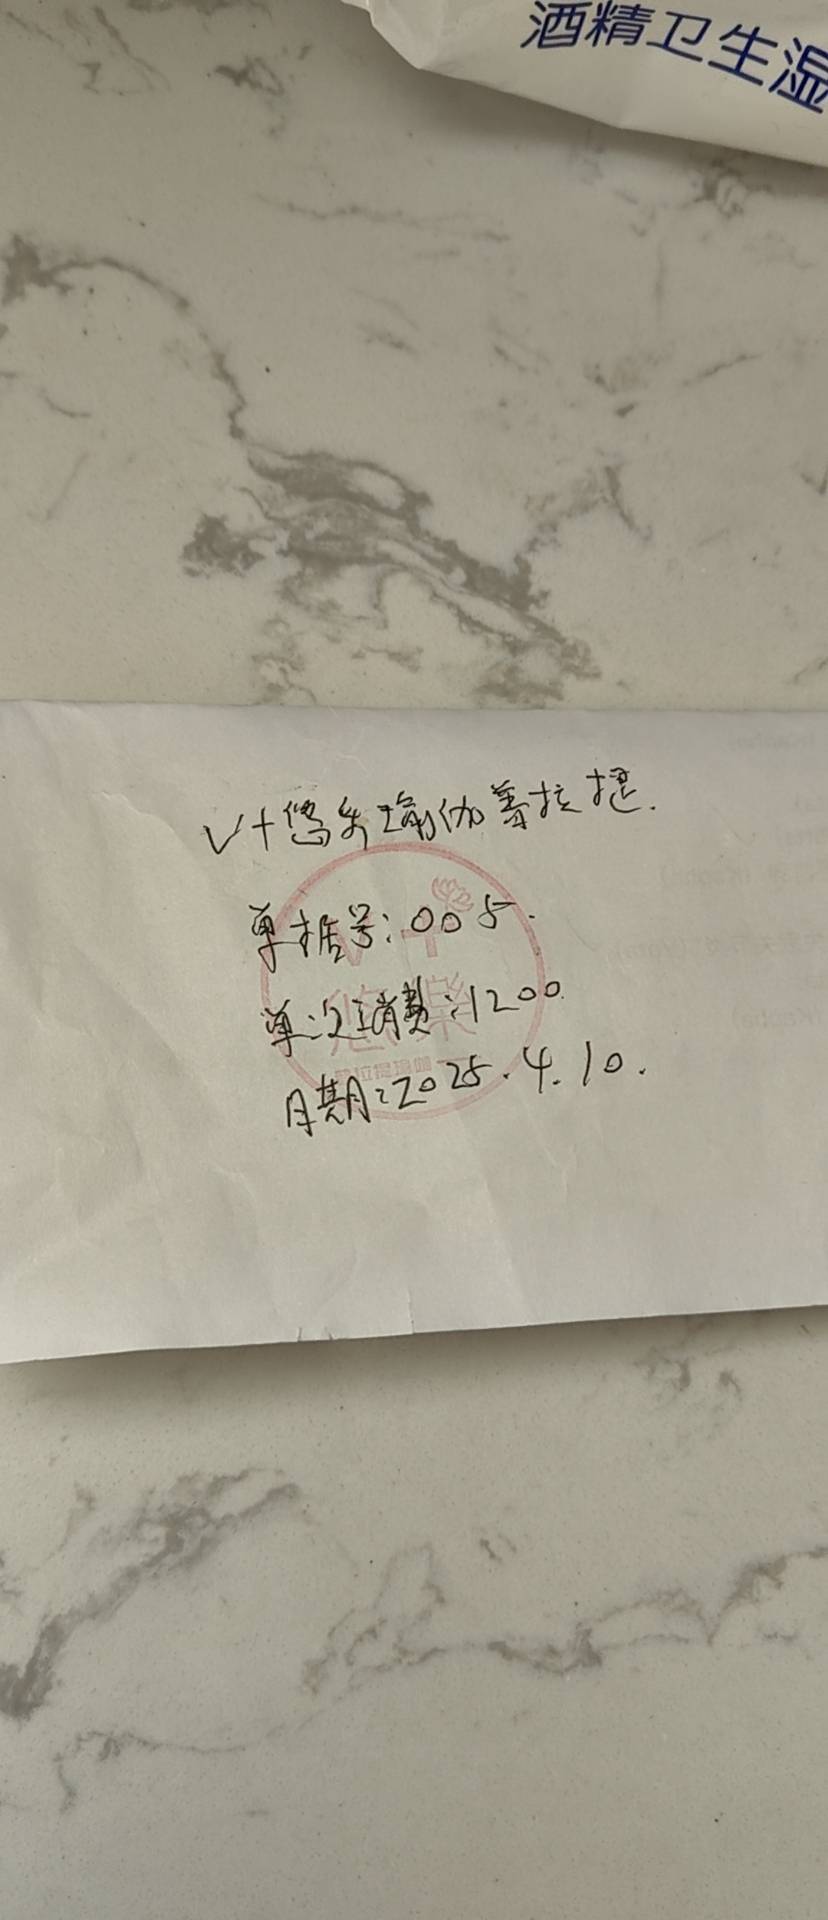 酒精卫生湿
V+悠乐瑜伽普拉提.
单据号:005.
单次消费:1200.
日期:2025.4.10.
V+
悠樂
普拉提瑜伽